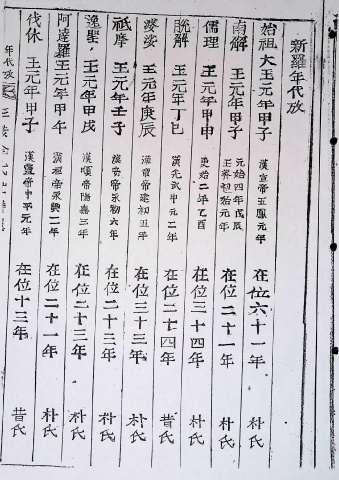 新羅年代攷
始祖大王元年甲子 漢宣帝五鳳元年 在位六十一年 朴氏
南解王元年甲子 元始四年戊辰 王莽初始元年 在位二十一年 朴氏
儒理王元年甲申 更始二年乙酉 在位三十四年 朴氏
脫解王元年丁巳 漢光武中元二年 在位二十四年 昔氏
婆娑王元年庚辰 漢章帝建初五年 在位三十三年 朴氏
祇摩王元年壬子 漢安帝永初六年 在位二十三年 朴氏
逸聖王元年甲戌 漢順帝陽嘉三年 在位二十三年 朴氏
阿達羅王元年甲午 漢桓帝永興二年 在位二十一年 朴氏
伐休王元年甲子 漢靈帝中平元年 在位十三年 昔氏
年代攷